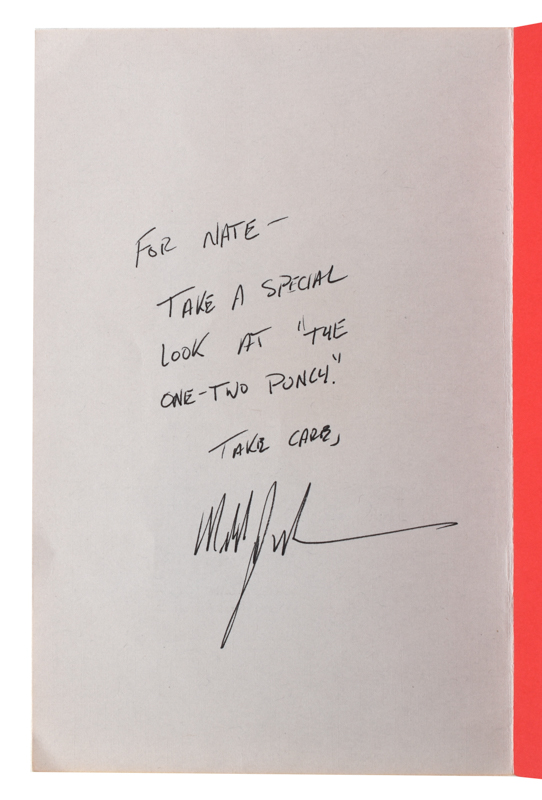 FOR NATE—
TAKE A SPECIAL
LOOK AT "THE
ONE-TWO PUNCH."
TAKE CARE,